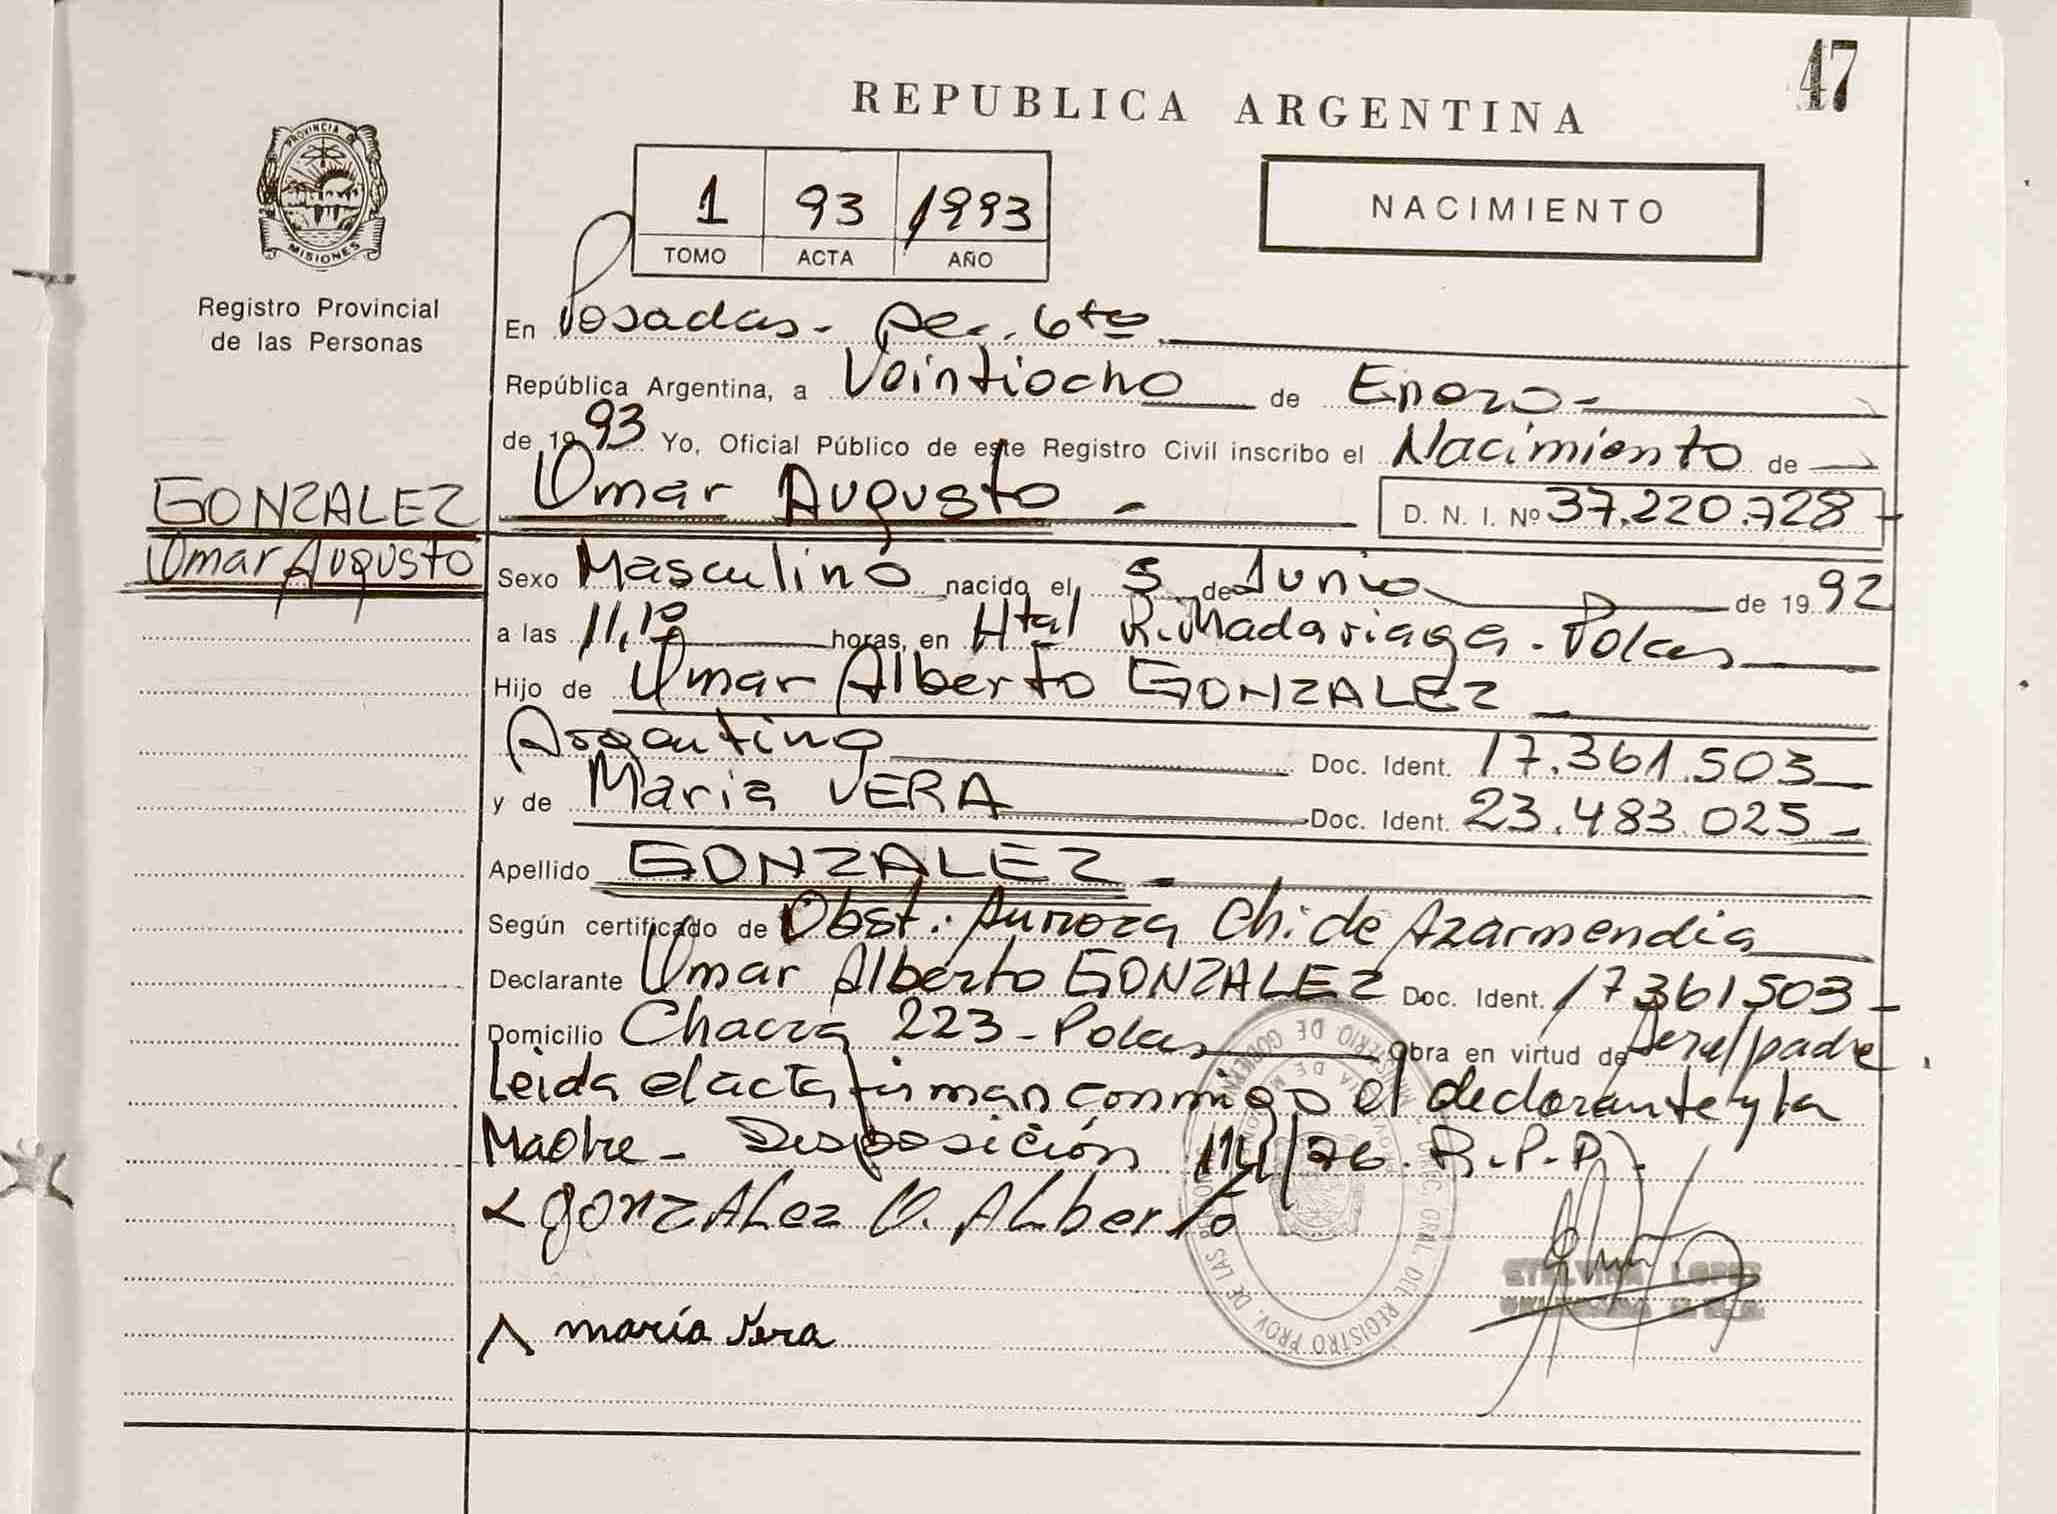 47
REPUBLICA ARGENTINA
PROVINCIA DE
MISIONES
Registro Provincial
de las Personas
1 93 1993
TOMO ACTA AÑO
NACIMIENTO
En Posadas- Sec. 6ta
República Argentina, a Veintiocho de Enero-
de 1993 Yo, Oficial Público de este Registro Civil inscribo el Nacimiento de
GONZALEZ
Omar Augusto
Omar Augusto - D. N. I. Nº 37.220.728
Sexo Masculino nacido el 5 de Junio de 1992
a las 11,10 horas, en Htal R. Madariaga - Pdas
Hijo de Omar Alberto GONZALEZ
Argentino Doc. Ident. 17.361.503
y de Maria VERA Doc. Ident. 23.483.025
Apellido GONZALEZ
Según certificado de Obst. Aurora Ch. de Azarmendia
Declarante Omar Alberto GONZALEZ Doc. Ident. 17361503
Domicilio Chacra 223 - Pdas Obra en virtud de Ser el padre
Leida el acta firman conmigo el declarante y la
Madre - Disposición 114/76. R.P.P.
Gonzalez O. Alberto
maría Vera
LOPEZ